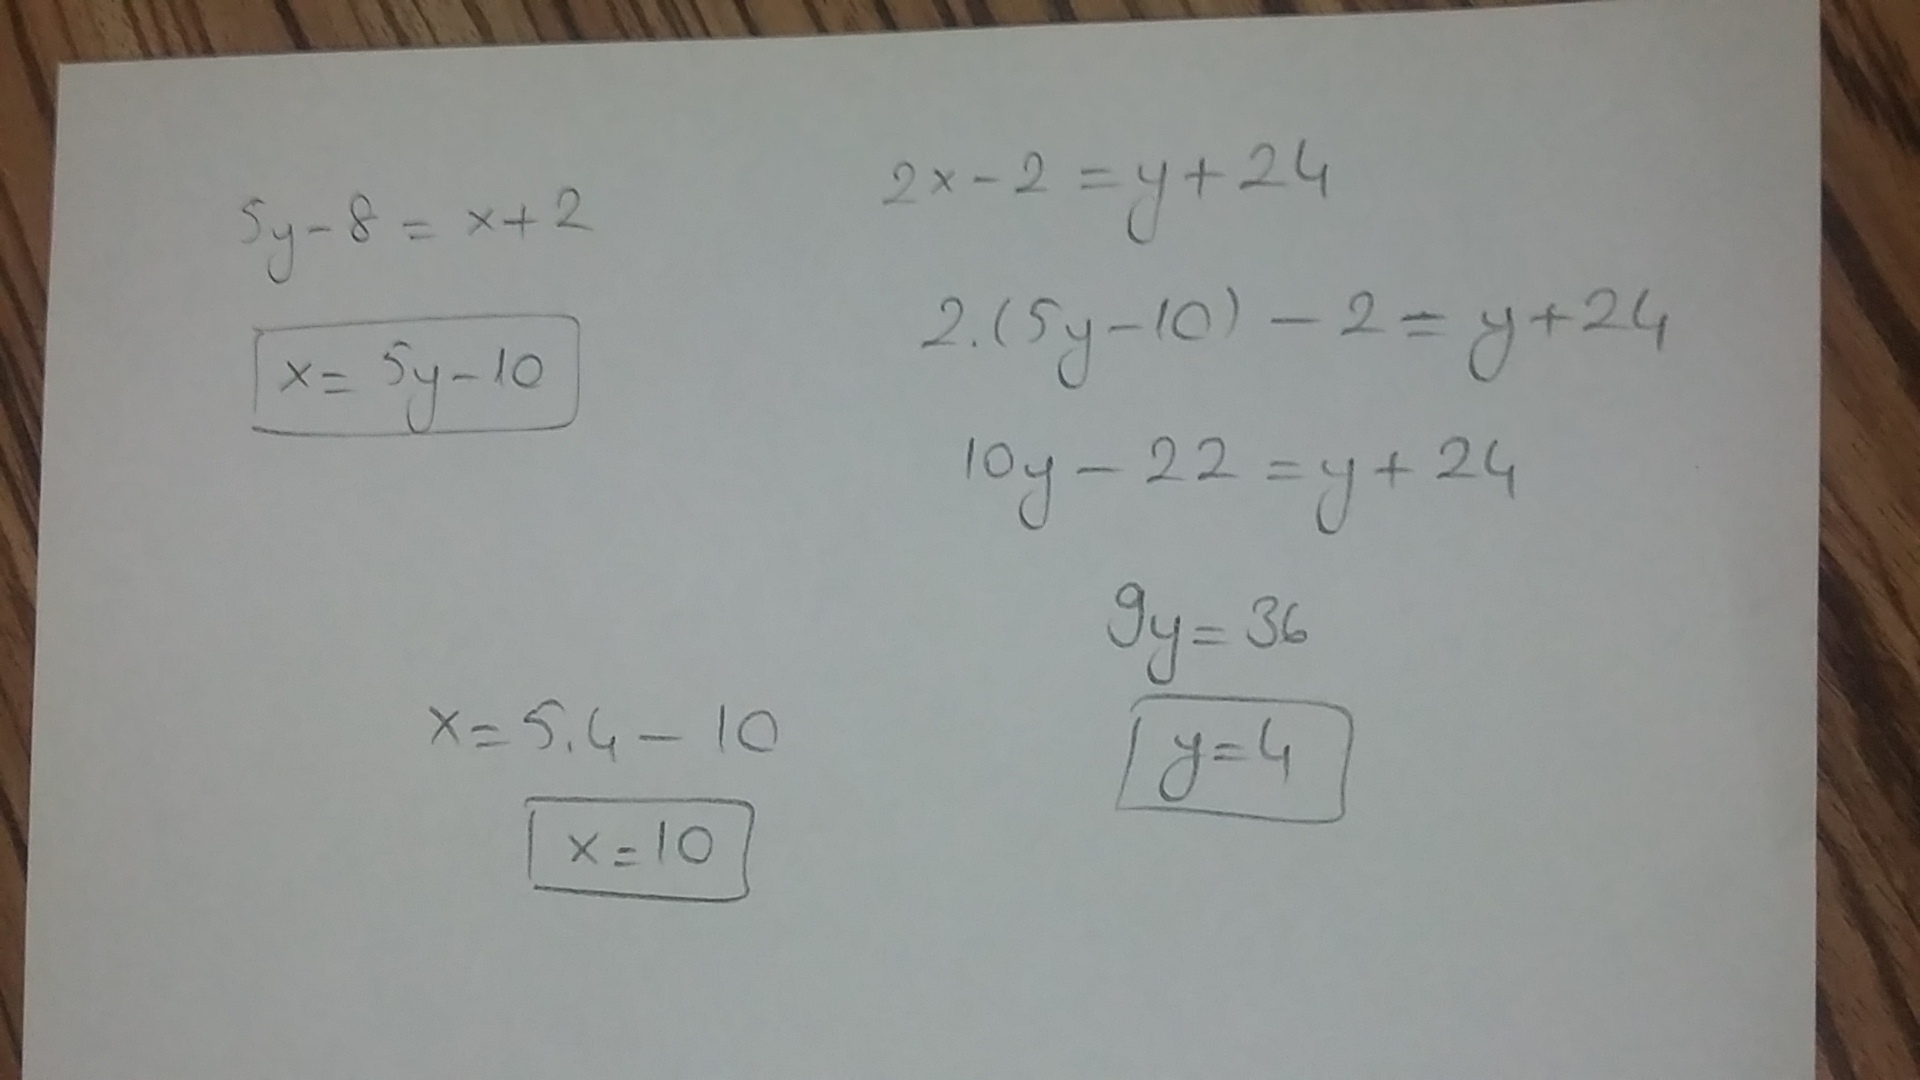 5y-8 = x+2
x= 5y-10
2x-2 = y+24
2.(5y-10) - 2 = y+24
10y - 22 = y+24
9y= 36
y=4
x= 5.4 - 10
x=10